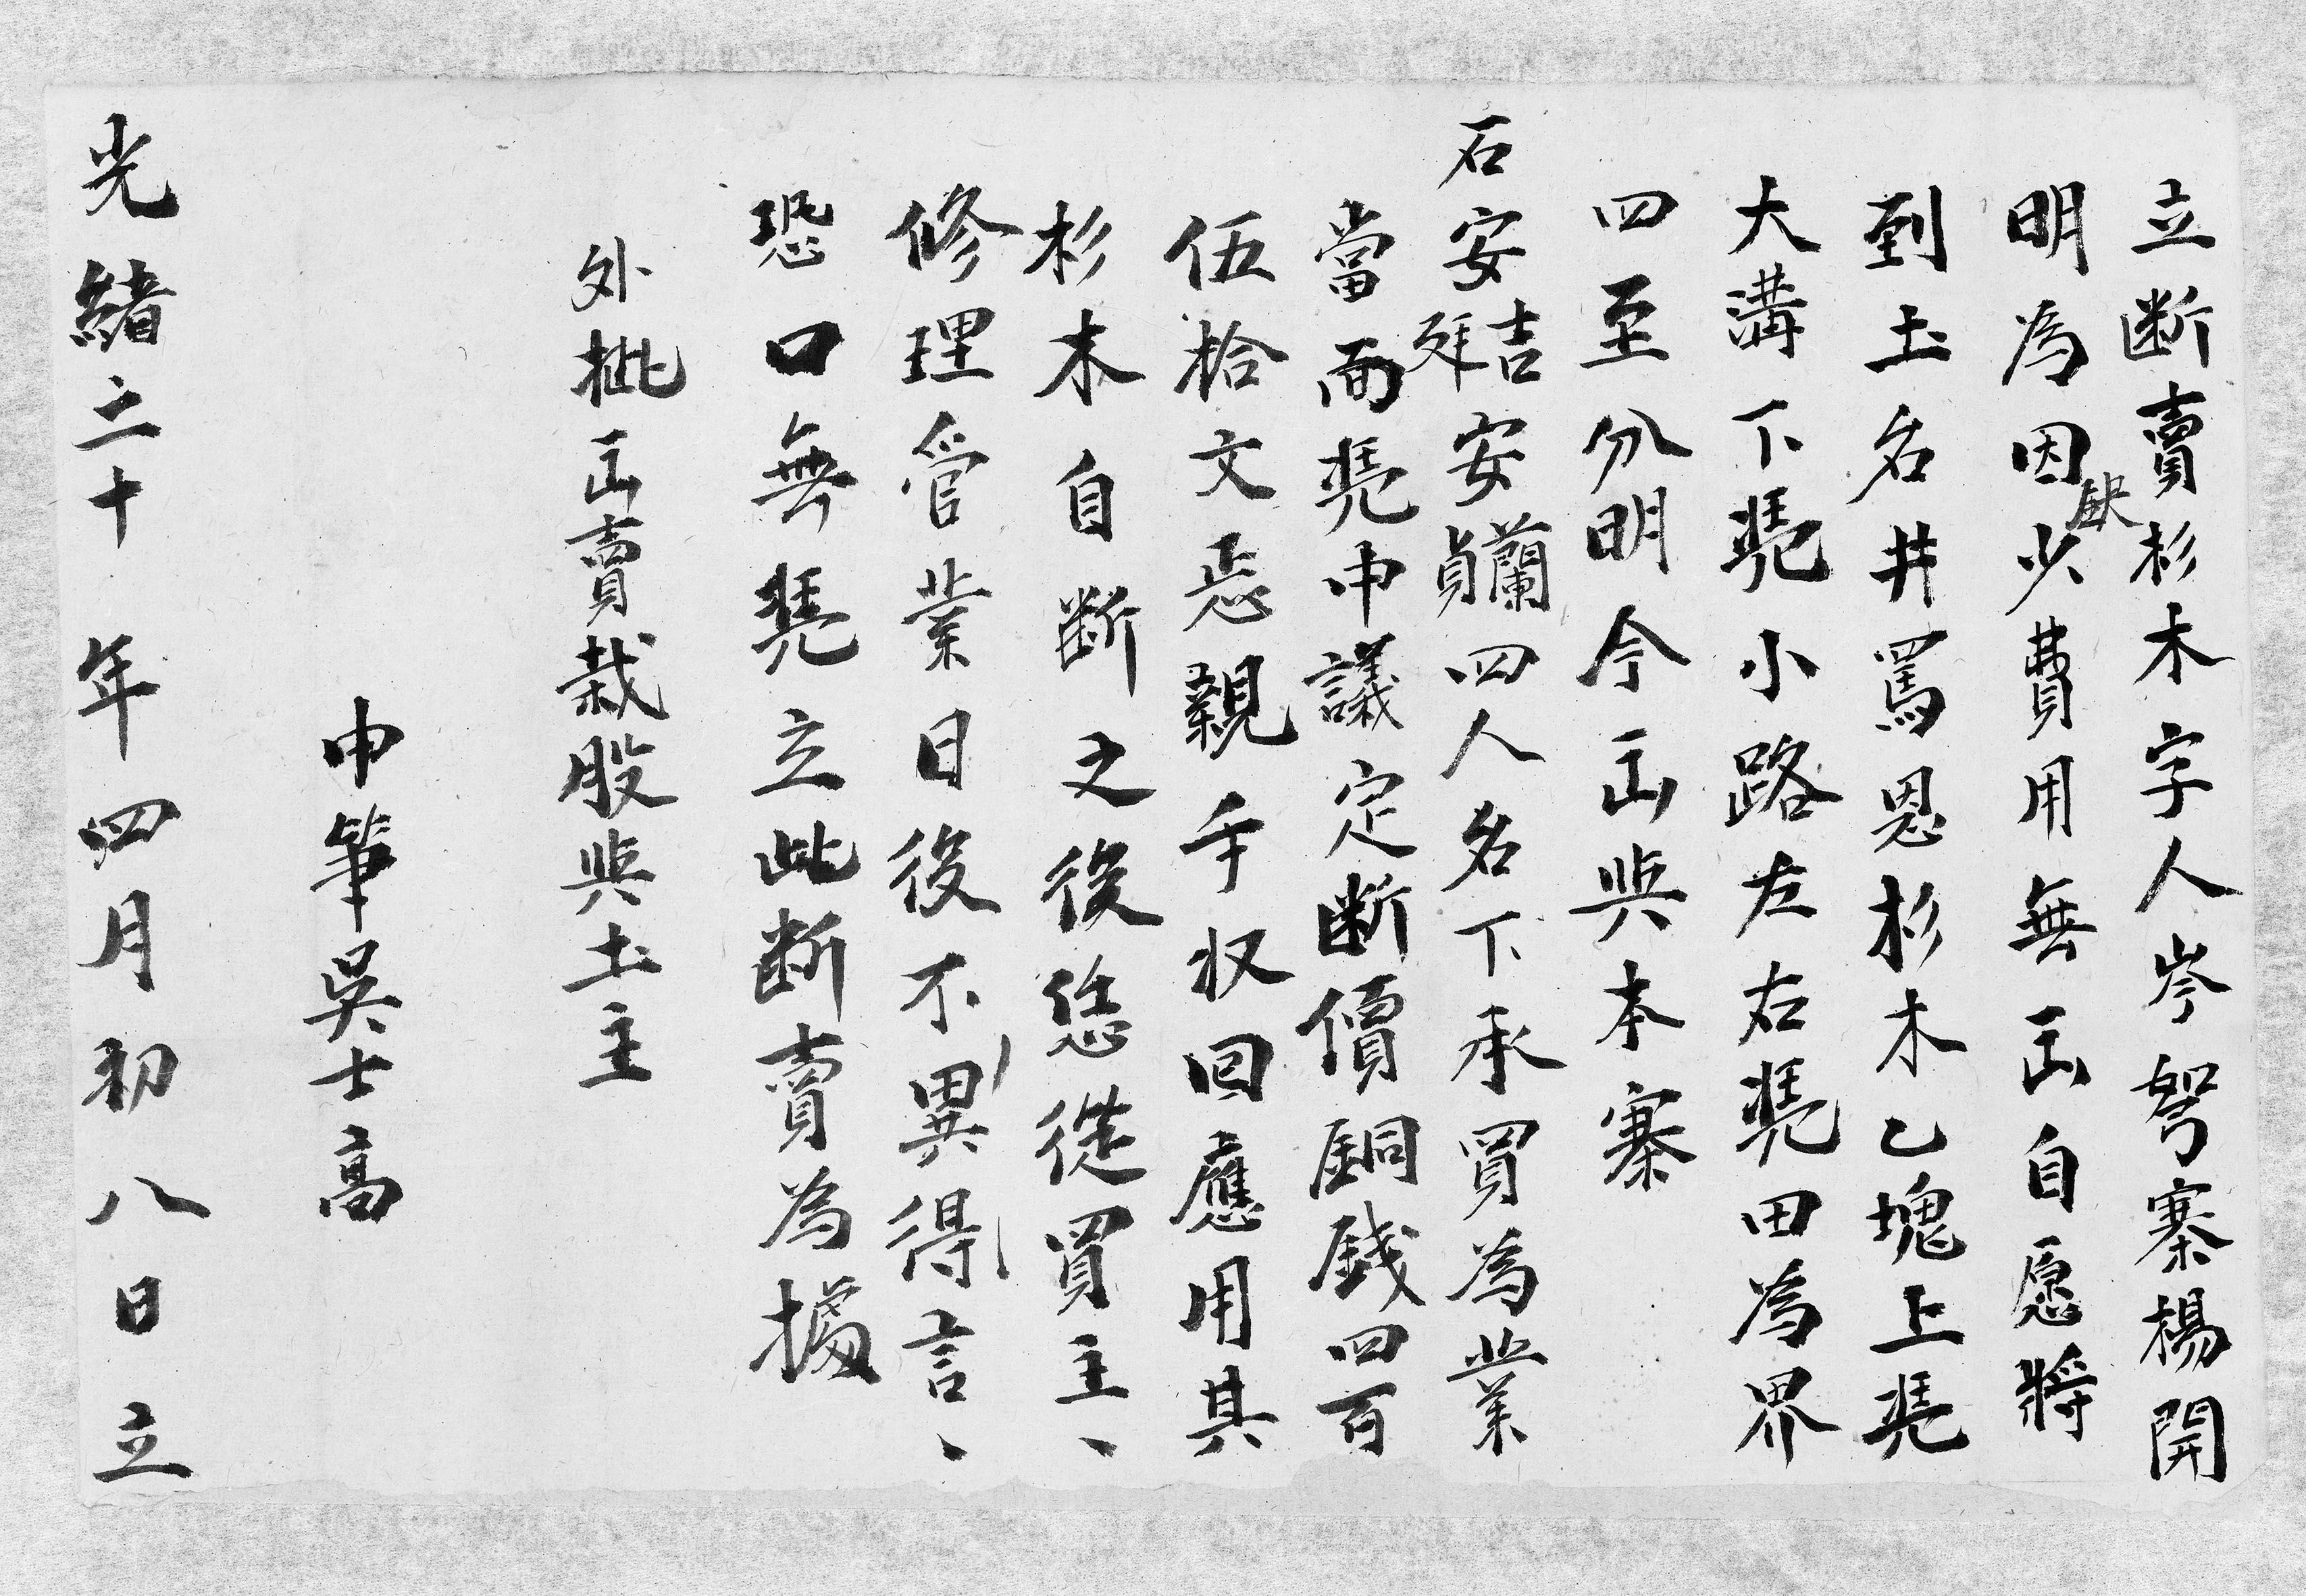 立断賣杉木字人岑努寨楊開
明為因缺少費用無出自愿將
到土名井罵恩杉木乙塊上凴
大溝下凴小路左右凴田為界
四至分明今出與本寨
石安吉廷安蘭貞四人名下承買為業
當面凴中議定断價銅錢四百
伍拾文忘親手収回應用其
杉木自断之後恁從買主、
修理管業日後不異得言、
恐口無凴立此断賣為據
外批出賣栽股與土主
中筆吳士高
光緒二十年四月初八日立